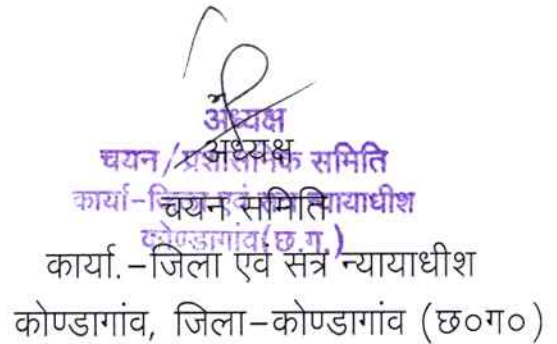 अध्यक्ष
चयन/प्रशासनिक समिति
कार्या-जिला एवं सत्र न्यायाधीश
कोण्डागांव(छ.ग.)
अध्यक्ष
चयन समिति
कार्या.-जिला एवं सत्र न्यायाधीश
कोण्डागांव, जिला-कोण्डागांव (छ०ग०)